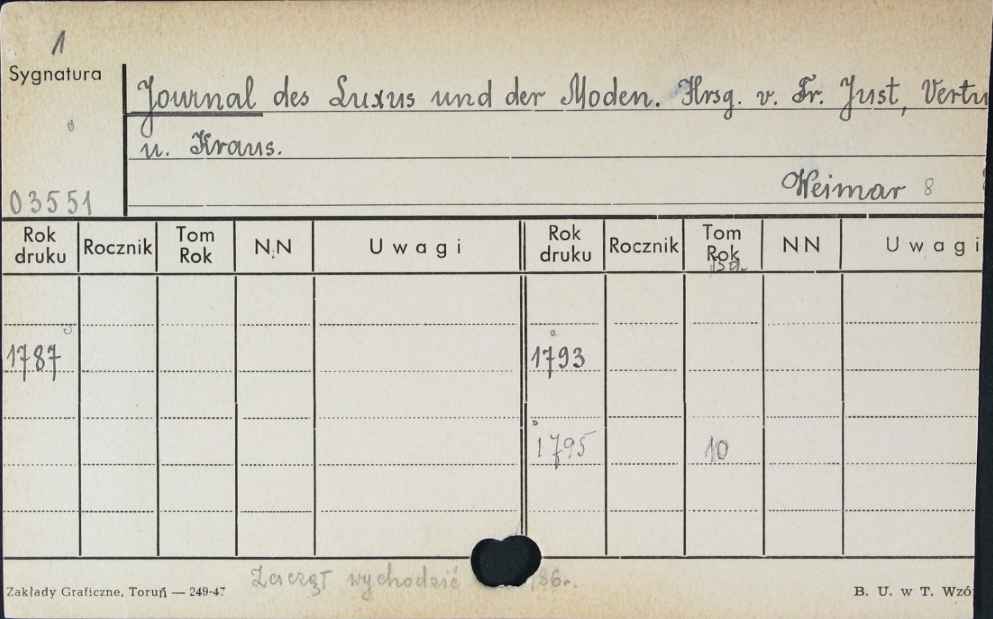 1
Sygnatura
Journal des Luxus und der Moden. Hrsg. v. Fr. Just, Vertu
u. Kraus.
Weimar 8
03551
Rok druku Rocznik Tom Rok N.N Uwagi Rok druku Rocznik Tom Rok NN Uwagi
1787 1793
1795 10
Zaczął wychodzić 86r.
Zakłady Graficzne, Toruń — 249-47 B. U. w T. Wzó